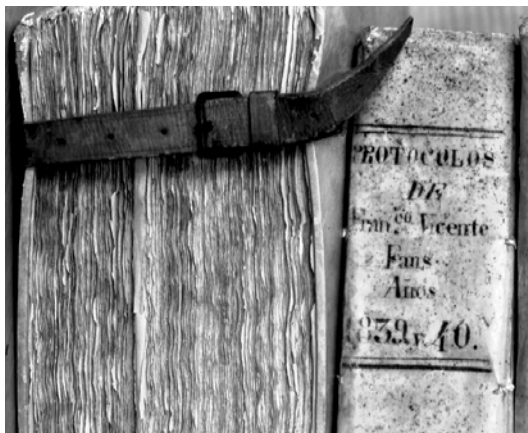 PROTOCOLOS
DE
Fran.co Vicente
Fans
Años
1839 y 40.